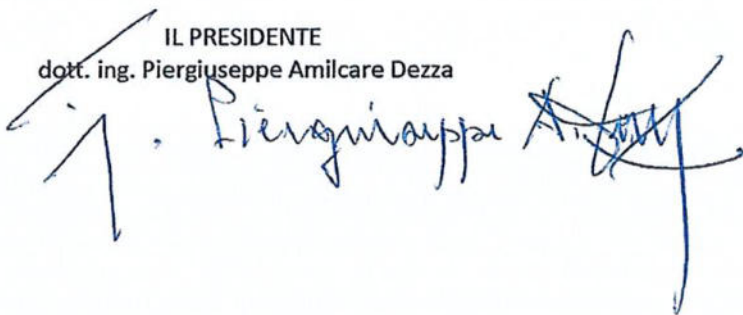 IL PRESIDENTE
dott. ing. Piergiuseppe Amilcare Dezza
Piergiuseppe A.